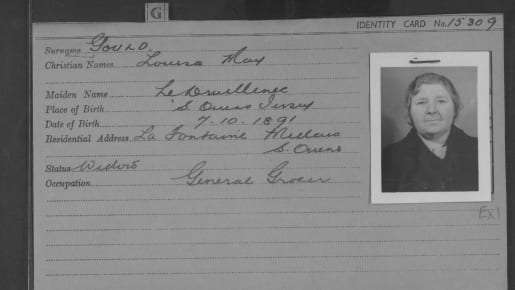 G
IDENTITY CARD No. 15309
Surname GOULD
Christian Names Louisa May
Maiden Name Le Druillenec
Place of Birth S. Ouens Jersey
Date of Birth 7.10.1891
Residential Address La Fontaine Millais
S. Ouens
Status Widow
Occupation General Grocer
EX1